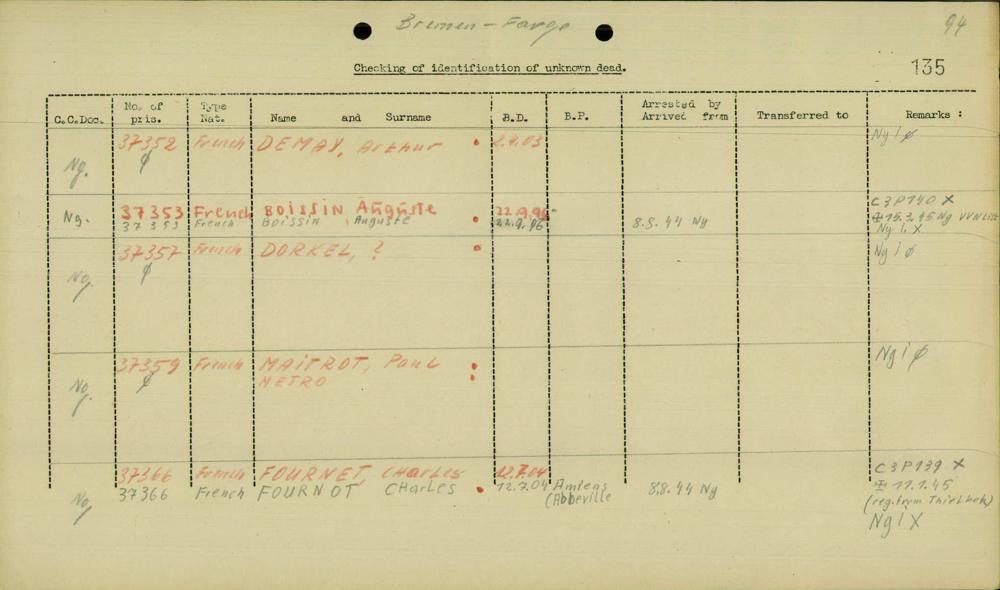 Bremen - Farge
94
Checking of identification of unknown dead.
135
C.C.Doc. No. of pris. Type Nat. Name and Surname B.D. B.P. Arrested by Arrived from Transferred to Remarks :
Ng. 37352 French DEMAY, Arthur 2.4.03 Ng i ø
ø
Ng. 37353 French BOISSIN Auguste 22.9.96 C3P140 X
37353 French BOISSIN, Auguste 22.9.96 8.8.44 Ng 15.3.45 Ng VVN List
Ng i. X
Ng. 37357 French DORKEL, ? Ng i ø
ø
Ng. 37359 French MAITROT, Paul Ng i ø
ø METRO
37366 French FOURNET, CHarles 12.7.04 C3P139 X
Ng 37366 French FOURNOT CHarles 12.7.04 Amiens 8.8.44 Ng 11.1.45
(Abbeville (reg. from Thielbek)
Ng i X